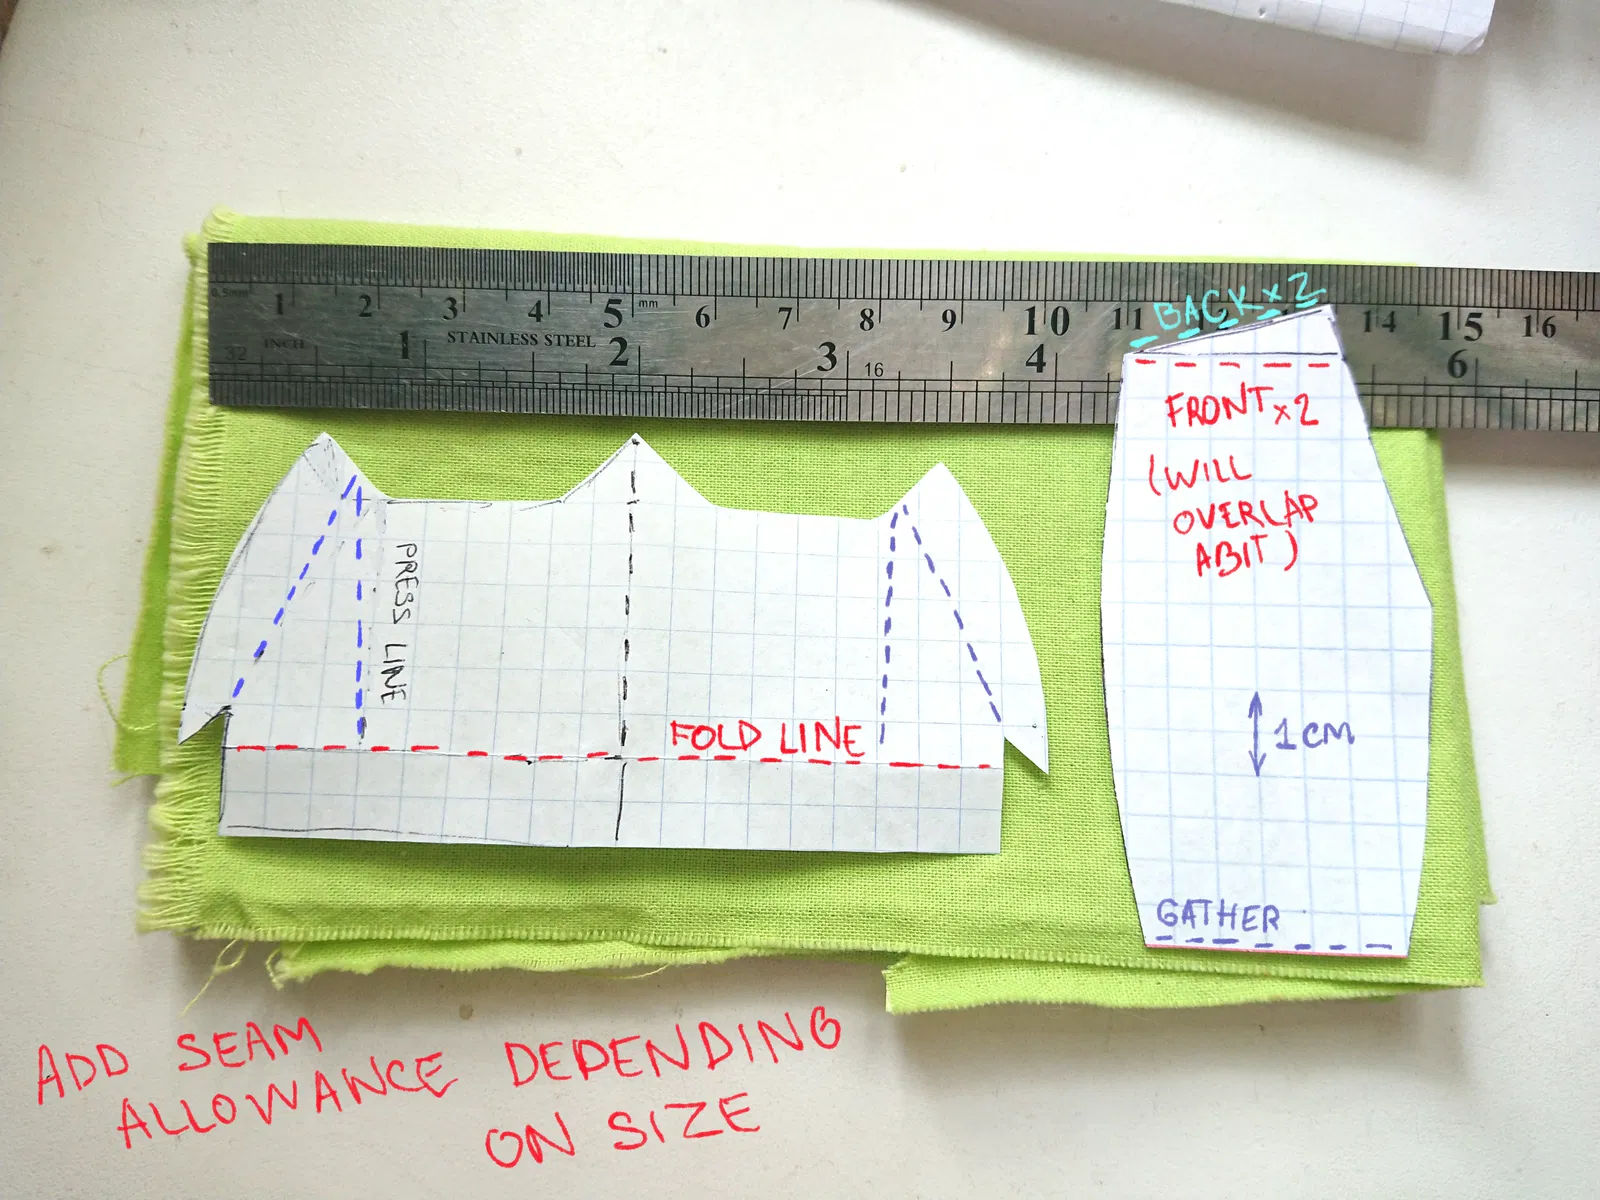 0.5mm 1 2 3 4 5 mm 6 7 8 9 10 11 14 15 16
32 INCH 1 STAINLESS STEEL 2 3 16 4 6
BACK x 2
FRONT x 2
(WILL
OVERLAP
ABIT)
PRESS LINE
FOLD LINE
1 CM
GATHER
ADD SEAM
ALLOWANCE DEPENDING
ON SIZE